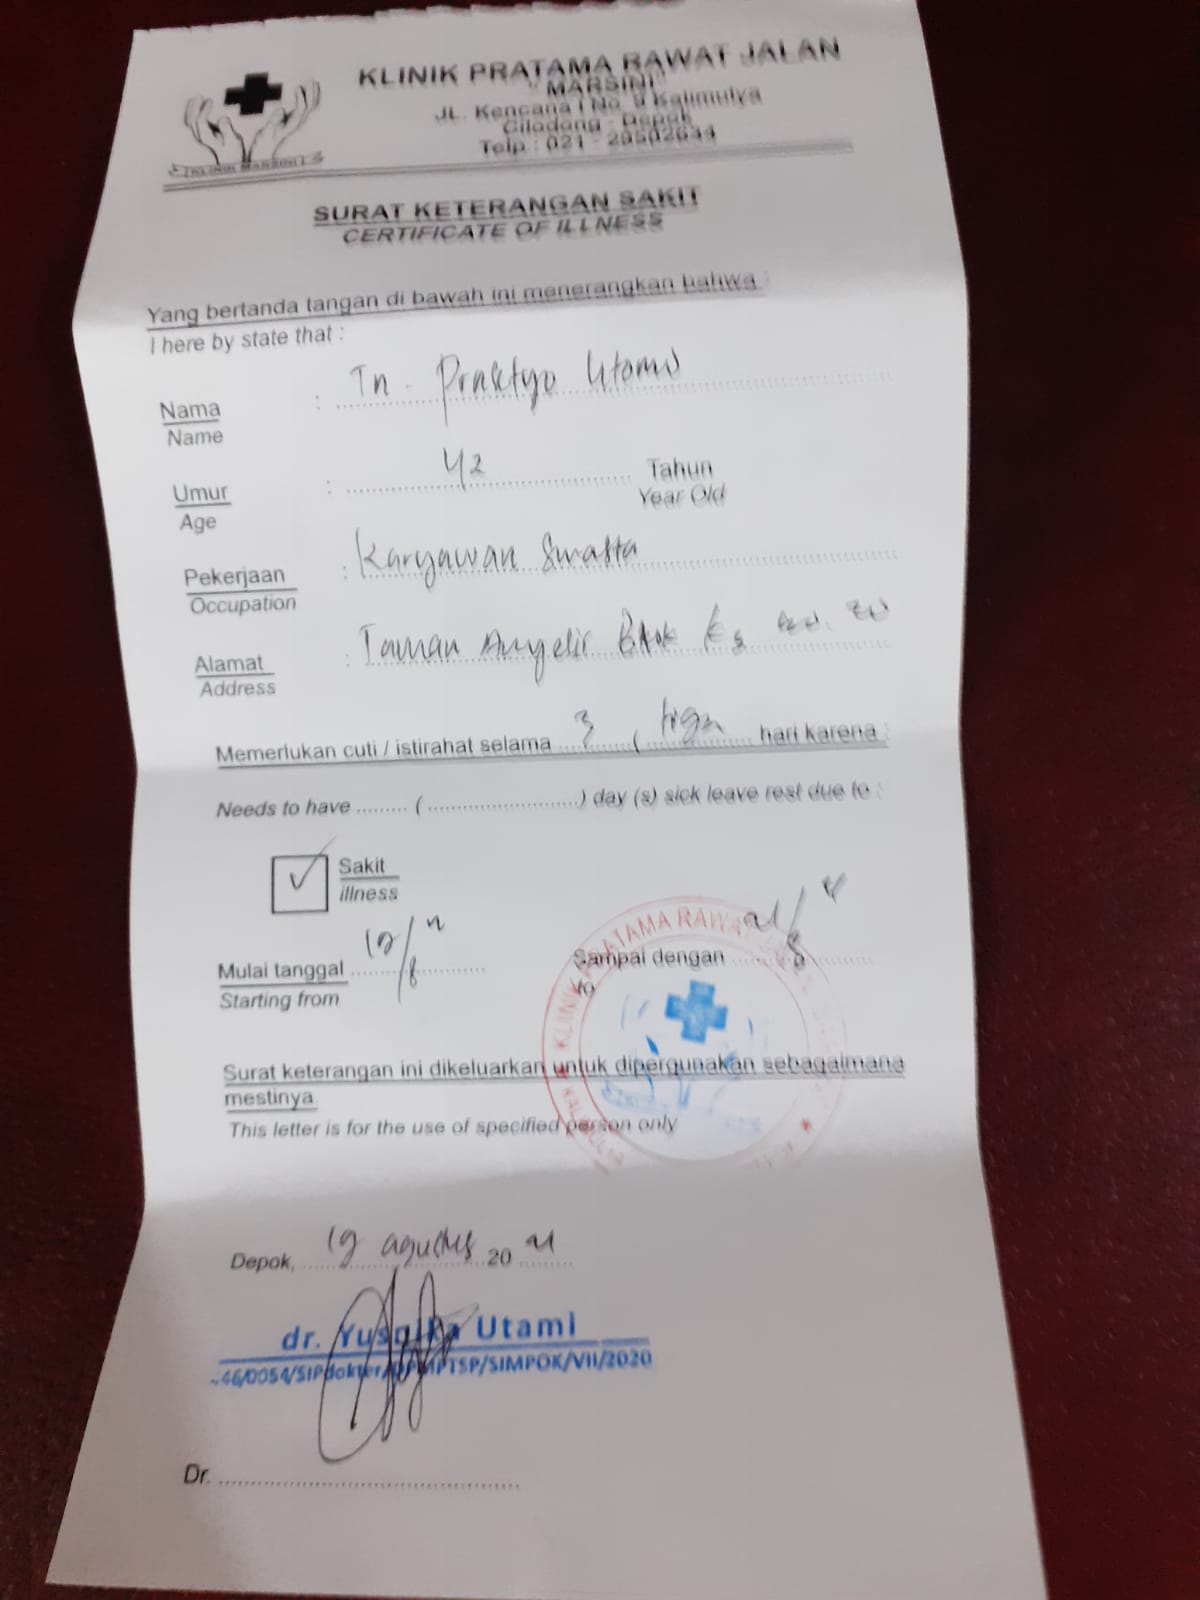 KLINIK PRATAMA RAWAT JALAN
"MARSINI"
JL. Kencana I No. 9 Kalimulya
Cilodong - Depok
Telp : 021 - 29502634
KLINIK MARSINI
SURAT KETERANGAN SAKIT
CERTIFICATE OF ILLNESS
Yang bertanda tangan di bawah ini menerangkan bahwa :
I here by state that :
Nama : Tn. Praktyo Utomo
Name
Umur : 42 Tahun
Age Year Old
Pekerjaan : Karyawan Swasta
Occupation
Alamat : Taman Anyelir Blok
Address
Memerlukan cuti / istirahat selama 3 ( tiga hari karena :
Needs to have ......... (.........................) day (s) sick leave rest due to :
✓ Sakit
illness
Mulai tanggal 19/8 Sampai dengan 21/8
Starting from to
Surat keterangan ini dikeluarkan untuk dipergunakan sebagaimana
mestinya.
This letter is for the use of specified person only
KLINIK PRATAMA RAWAT
Depok, 19 agustus 20 21
dr. Yusnika Utami
46/0054/SIPdokter/ /SIMPOK/VII/2020
Dr. ..........................................